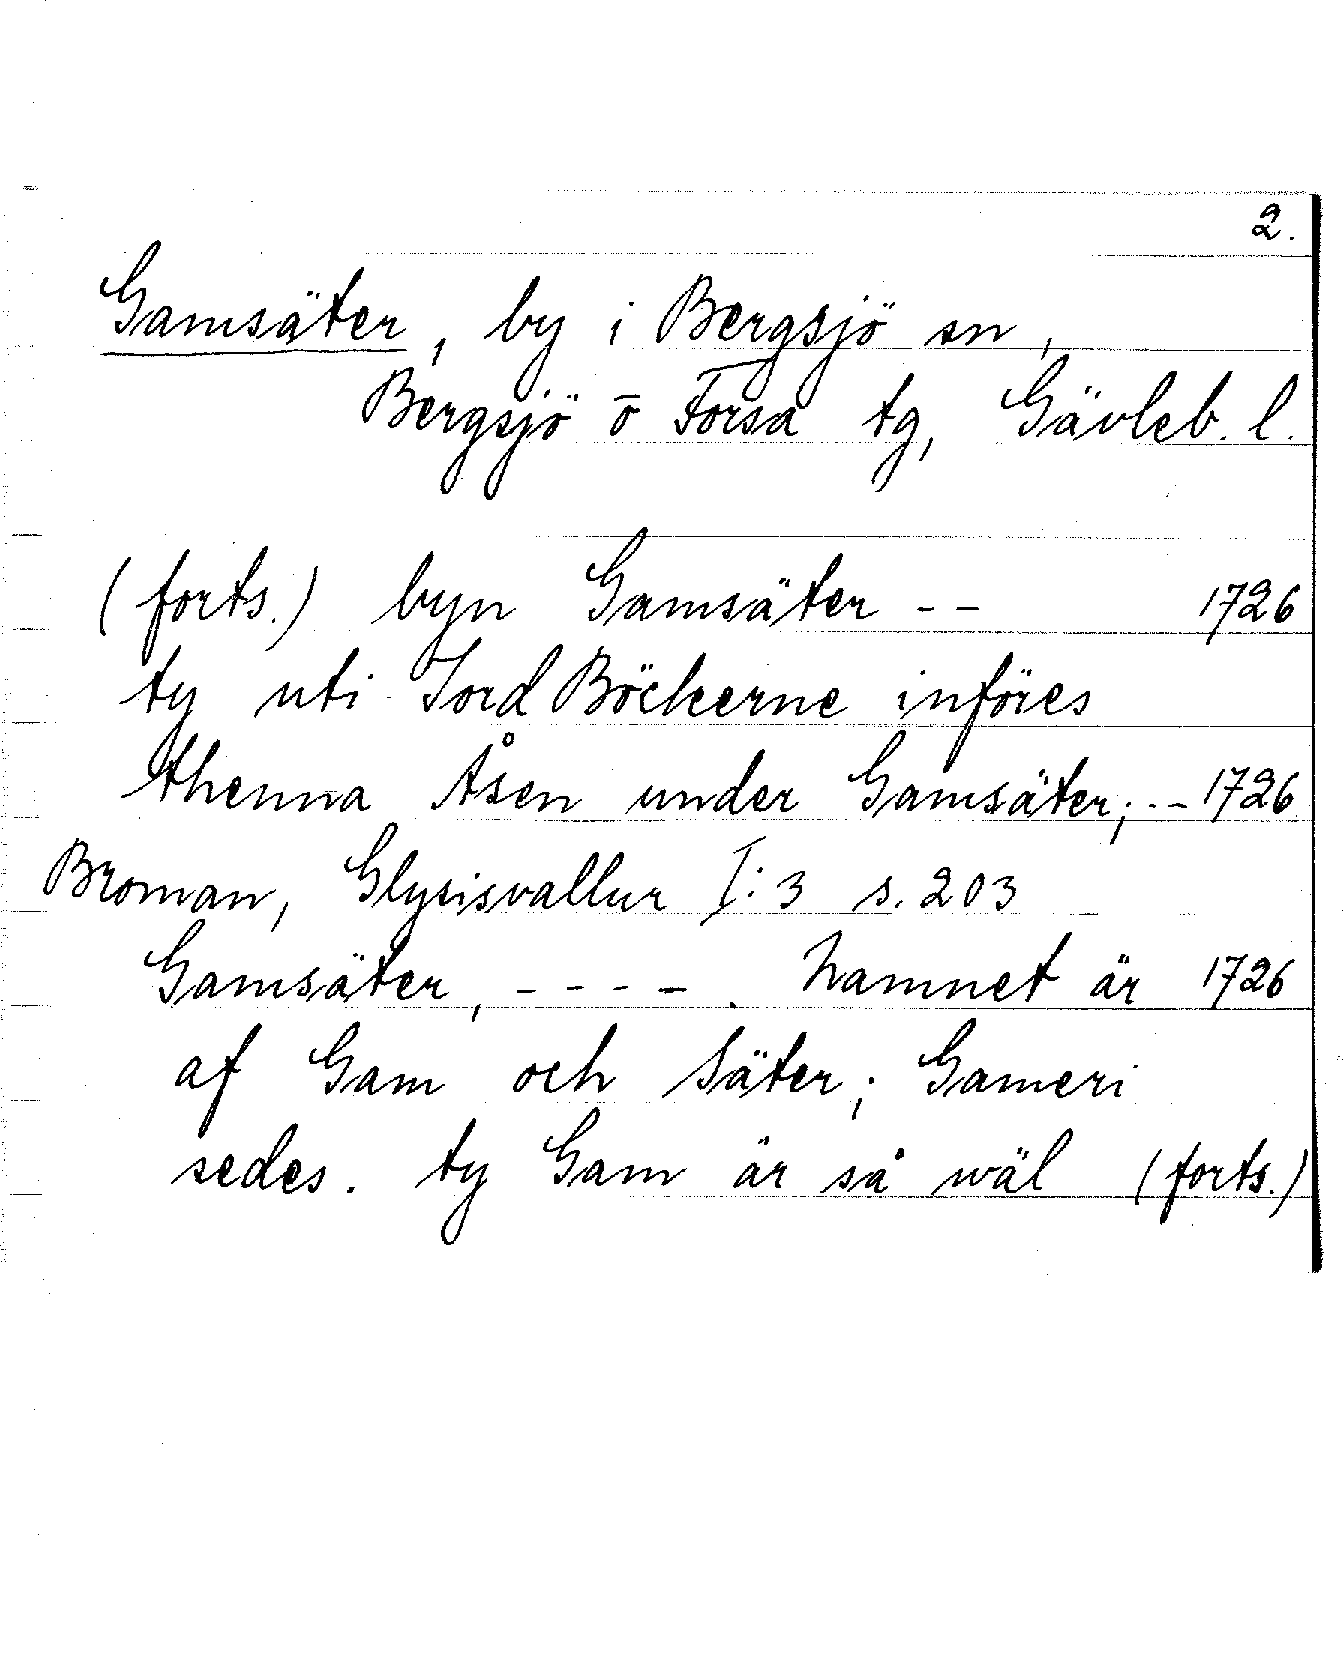 2.
Gamsäter, by i Bergsjö sn,
Bergsjö o Forsa tg, Gävleb. l.
(forts.) byn Gamsäter -- 1726
ty uti Jord Böckerne införes
thenna Åsen under Gamsäter; -- 1726
Broman, Glysisvallur I:3 s. 203
Gamsäter, ----. Namnet är 1726
af Gam och Säter; Gameri
sedes. ty Gam är så wäl (forts.)